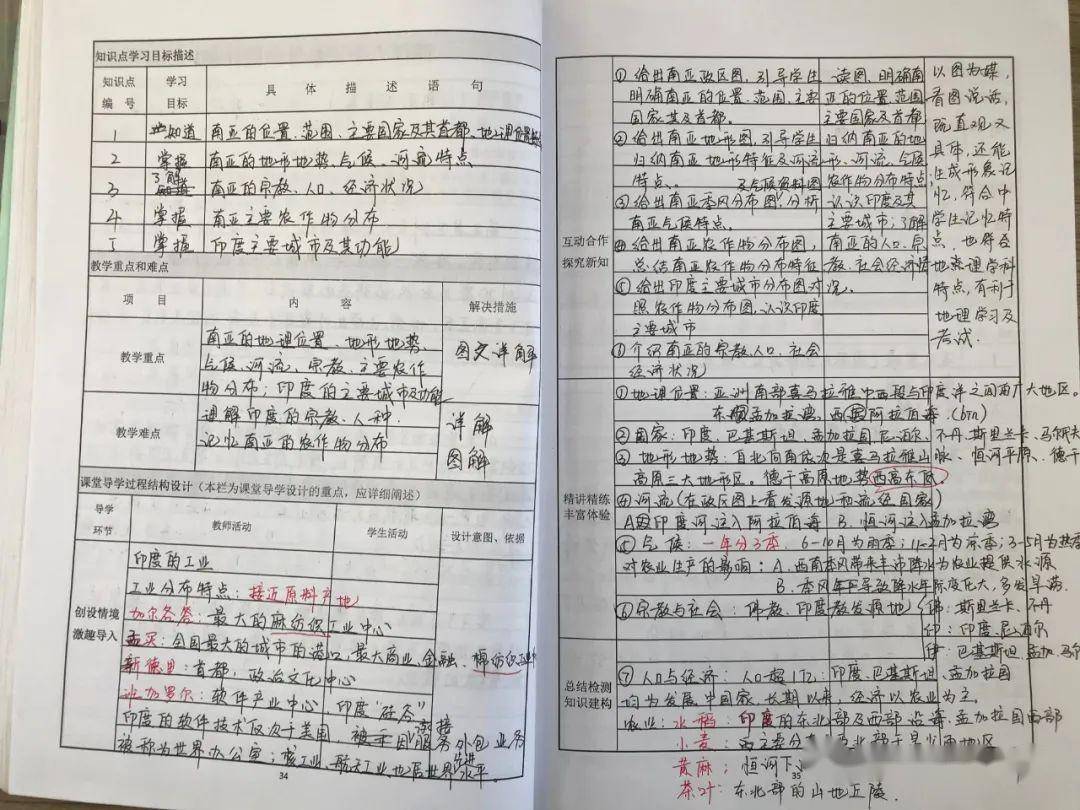 知识点学习目标描述
知识点编号 学习目标 具体描述语句
1 知道 南亚的位置、范围、主要国家及其首都、地理位置
2 掌握 南亚的地形地势、气候、河流特点
3 了解 南亚的宗教、人口、经济状况
4 掌握 南亚主要农作物分布
5 掌握 印度主要城市及其功能
教学重点和难点
项目 内容 解决措施
教学重点
南亚的地理位置、地形地势、
气候、河流、宗教、主要农作
物分布；印度的主要城市及功能
图文详解
教学难点
理解印度的宗教、人种.
记忆南亚的农作物分布
详解
图解
课堂导学过程结构设计（本栏为课堂导学设计的重点，应详细阐述）
导学环节 教师活动 学生活动 设计意图、依据
创设情境
激趣导入
印度的工业
工业分布特点：接近原料产地
加尔各答：最大的麻纺织工业中心
孟买：全国最大的城市的港口，最大商业、金融、棉纺织业
新德里：首都，政治文化中心
班加罗尔：软件产业中心 印度"硅谷"
印度的软件技术仅次于美国 被美国服务外包业务
被称为世界办公室；核工业、航天工业也居世界先进水平。
34
互动合作
探究新知
①给出南亚政区图，引导学生
明确南亚的位置、范围、主要
国家其及首都.
②给出南亚地形图，引导学生
归纳南亚地形特征及河流
特点、
③给出南亚季风分布图及气候资料图，分析
南亚气候特点.
④给出南亚农作物分布图，
总结南亚农作物分布特征
⑤给出印度主要城市分布图对
照农作物分布图，认识印度
主要城市
⑥介绍南亚的宗教、人口、社会
经济状况
读图，明确南
亚的位置、范围
主要国家及首都
归纳南亚的地
形、河流、气候
农作物分布特点
认识印度及其
主要城市；了解
南亚的人口、宗
教、社会经济情
况.
以图为媒，
看图说话，
既直观又
具体，还能
生成形象记
忆，符合中
学生记忆特
点，也符合
地理学科
特点，有利于
地理学习及
考试.
精讲精练
丰富体验
①地理位置：亚洲南部喜马拉雅中西段与印度洋之间的广大地区。
东临孟加拉湾，西临阿拉伯海.
②国家：印度、巴基斯坦、孟加拉国、尼泊尔、不丹、斯里兰卡、马尔代夫
③地形地势：自北向南依次是喜马拉雅山脉、恒河平原、德干
高原三大地形区。德干高原地势西高东低。
④河流（在政区图上看发源地和流经国家）
A.印度河注入阿拉伯海 B.恒河注入孟加拉湾
⑤气候：一年分3季. 6-10月为雨季；11-2月为凉季；3-5月为热季
对农业生产的影响：A.西南季风带来丰沛降水为农业提供水源
B.季风年年导致降水年际变化大，多发旱涝.
⑥宗教与社会：佛教、印度教发源地 佛：斯里兰卡、不丹
印：印度、尼泊尔
伊：巴基斯坦、孟加、马尔
总结检测
知识建构
⑦人口与经济：人口超1亿：印度、巴基斯坦、孟加拉国
均为发展中国家，长期以来，经济以农业为主.
农业：水稻：印度的东北部及西部沿海，孟加拉国西部
小麦：
黄麻：恒河下
茶叶：东北部的山地丘陵.
35